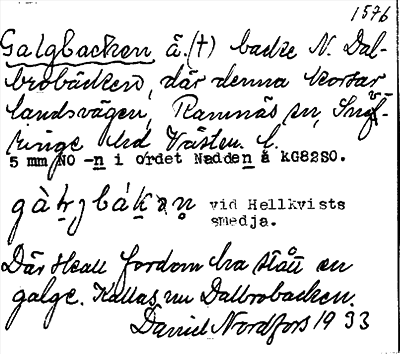 1576
Galgbacken å. (†) backe N. Dal-
brobäcken, där denna korsar
landsvägen, Ramnäs sn, Snäv-
ringe hd Västm. l.
5 mm NO -n i ordet Nadden å KG82SO.
gàḷjbákan
vid Hellkvists
smedja.
Där skall fordom ha stått en
galge. Kallas nu Dalbrobacken.
Daniel Nordfors 1933